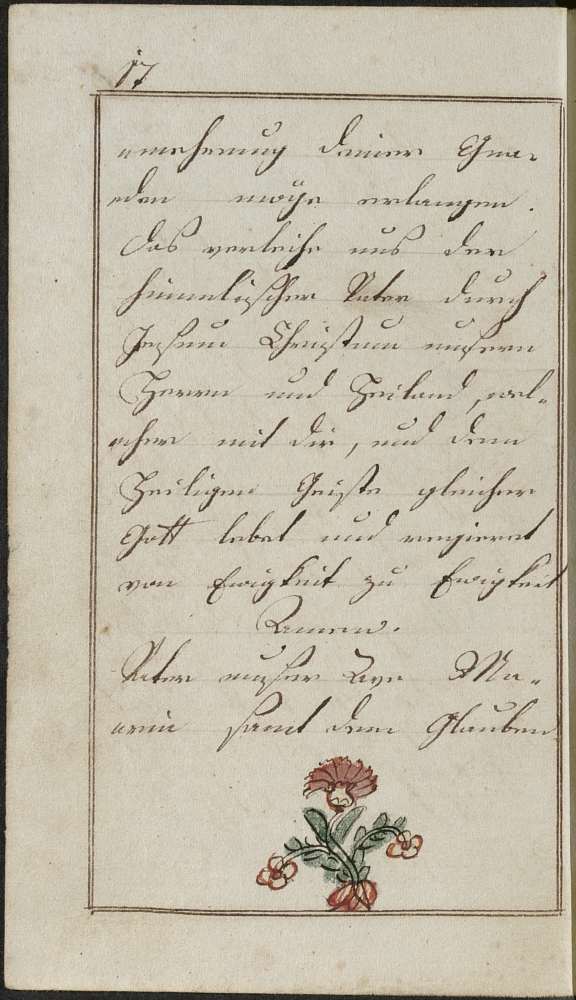 17
vermehrung deiner Gna-
den möge erlangen.
Das verleihe uns der
himmlischer Vater durch
Jesum Christum unsern
Herrn und Heiland, wel-
cher mit dir, und dem
Heiligen Geiste gleicher
Gott lebet und regieret
von Ewigkeit zu Ewigkeit
Amen.
Vater unser Ave Ma-
ria samt dem Glauben